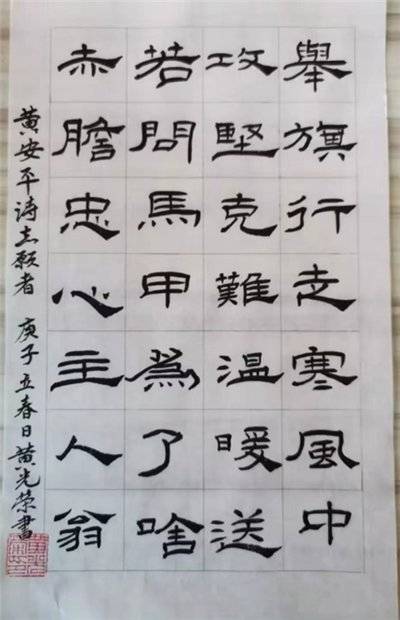 舉旗行走寒風中
攻堅克難温暖送
若問馬甲為了啥
赤膽忠心主人翁
黄安平诗志愿者 庚子立春日黄光荣書